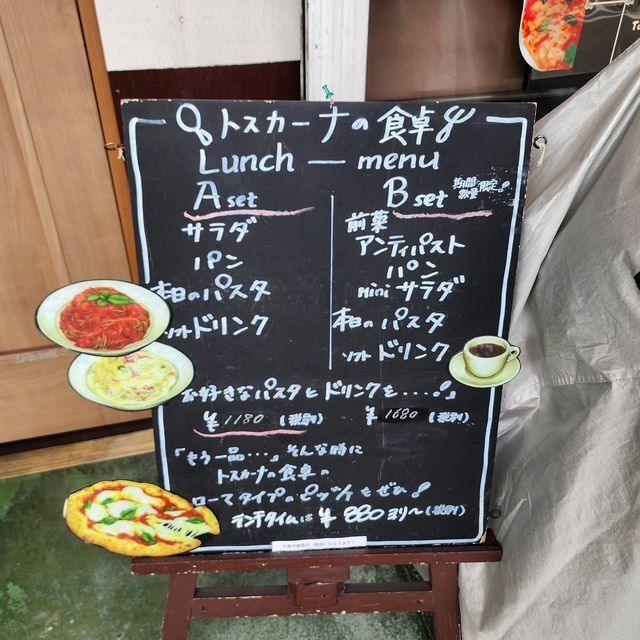 トスカーナの食卓
Lunch — menu
A set
サラダ
パン
本日のパスタ
ソフトドリンク
B set
期間
数量限定!
前菜
アンティパスト
パン
mini サラダ
本日の パスタ
ソフト ドリンク
お好きなパスタとドリンクを・・・・!」
¥1180 (税別)
¥1680 (税別)
「もう一品・・・」そんな時に
トスカーナの食卓の
ローマタイプのピッツァもぜひ!
ランチタイムは ¥880ヨリ〜(税別)